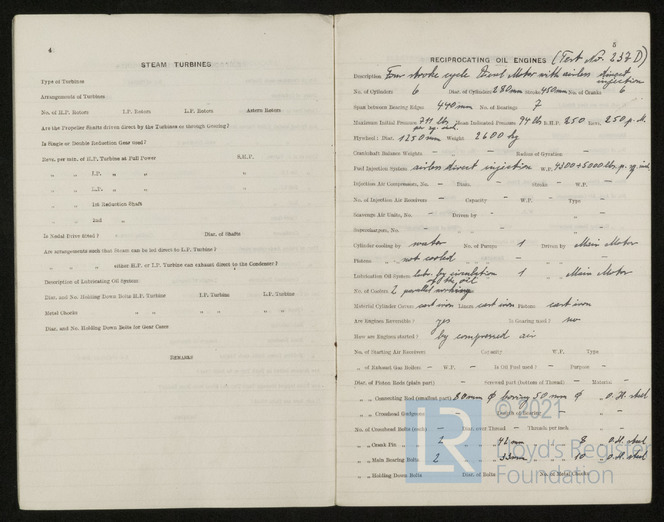 4
STEAM TURBINES
Type of Turbines
Arrangements of Turbines
No. of H.P. Rotors I.P. Rotors L.P. Rotors Astern Rotors
Are the Propeller Shafts driven direct by the Turbines or through Gearing?
Is Single or Double Reduction Gear used?
Revs. per min. of H.P. Turbine at Full Power S.H.P.
„ „ I.P. „ „ „
„ „ L.P. „ „ „
„ „ 1st Reduction Shaft
„ „ 2nd „
Is Nodal Drive fitted? Diar. of Shafts
Are arrangements such that Steam can be led direct to L.P. Turbine?
„ „ „ either H.P. or I.P. Turbine can exhaust direct to the Condenser?
Description of Lubricating Oil System
Diar. and No. Holding Down Bolts H.P. Turbine I.P. Turbine L.P. Turbine
Metal Chocks „ „ „ „
Diar. and No. Holding Down Bolts for Gear Cases
REMARKS
5
RECIPROCATING OIL ENGINES (Test No. 232 D)
Description Four stroke cycle Diesel Motor with airless direct injection
No. of Cylinders 6 Diar. of Cylinders 280mm Stroke 450mm No. of Cranks 6
Span between Bearing Edges 440mm No. of Bearings 7
Maximum Initial Pressure 711 lbs per sq. inch. Mean Indicated Pressure 94 lbs B.H.P. 250 Revs. 250 p. M.
Flywheel: Diar. 1250mm Weight 2600 kg
Crankshaft Balance Weights – – Radius of Gyration –
Fuel Injection System airless direct injection W.P. 4300÷5000 lbs. p. sq. inch.
Injection Air Compressors, No. – Diam. – Stroke – W.P. –
No. of Injection Air Receivers – Capacity – W.P. – Type –
Scavenge Air Units, No. – Driven by –
Superchargers, No. –
Cylinder cooling by water No. of Pumps 1 Driven by Main Motor
Pistons „ not cooled – –
Lubrication Oil System lubr. by circulation of the oil 1 „ Main Motor
No. of Coolers 2 parallel working
Material Cylinder Covers cast iron Liners cast iron Pistons cast iron
Are Engines Reversible? yes Is Gearing used? no
How are Engines started? by compressed air
No. of Starting Air Receivers Capacity W.P. Type
„ of Exhaust Gas Boilers – W.P. – Is Oil Fuel used? – Purpose –
Diar. of Piston Rods (plain part) – Screwed part (bottom of Thread) – Material –
„ „ Connecting Rod (smallest part) 80mm φ boring 50 mm φ „ O. H. steel
„ „ Crosshead Gudgeons Length of Bearing
No. of Crosshead Bolts (each) – Diar. over Thread – Threads per inch –
„ „ Crank Pin „ 2 „ 42 mm „ 8 O.H. steel
„ „ Main Bearing Bolts 2 „ 33mm „ 10 „ O. H. steel
„ „ Holding Down Bolts Diar. of Bolts No. of Metal Chocks
© 2021
LR
Lloyd's Register
Foundation